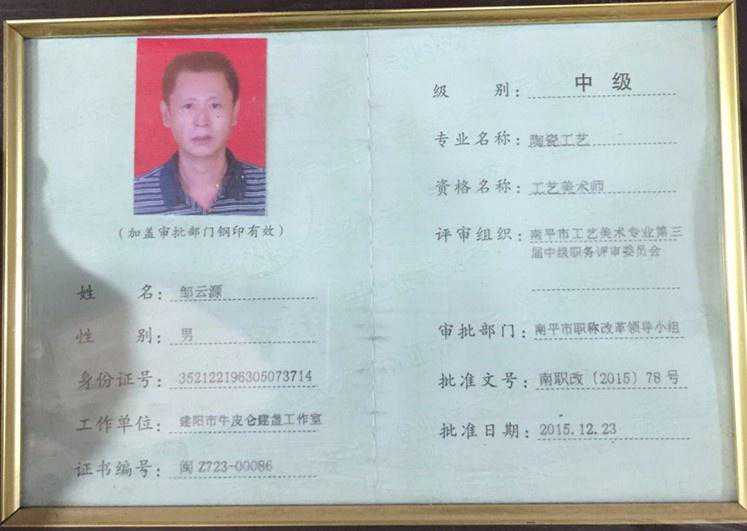 (加盖审批部门钢印有效)
姓 名: 邹云源
性 别: 男
身份证号: 352122196305073714
工作单位: 建阳市牛皮仑建盏工作室
证书编号: 闽Z723-00086
级 别: 中 级
专业名称: 陶瓷工艺
资格名称: 工艺美术师
评审组织: 南平市工艺美术专业第三
届中级职务评审委员会
审批部门: 南平市职称改革领导小组
批准文号: 南职改〔2015〕78号
批准日期: 2015.12.23